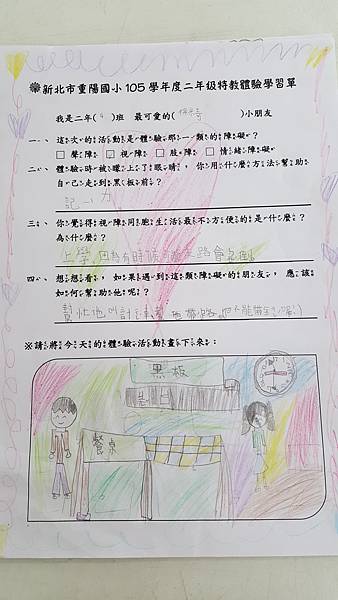 新北市重陽國小105學年度二年級特教體驗學習單
我是二年( )班 最可愛的( )小朋友
一、這次的活動是體驗那一類的障礙？
□聲障 ☑視障 □肢障 □情緒障礙
二、體驗時被矇上了眼睛，你用什麼方法幫助
自己走到黑板前？
記 力
三、你覺得視障同胞生活最不方便的是什麼？
為什麼？
上學 因為有時候 路會
四、想想看，如果遇到這類障礙的朋友，應該
如何幫助他呢？
幫忙他叫計
※請將今天的體驗活動畫下來：
黑板
餐桌